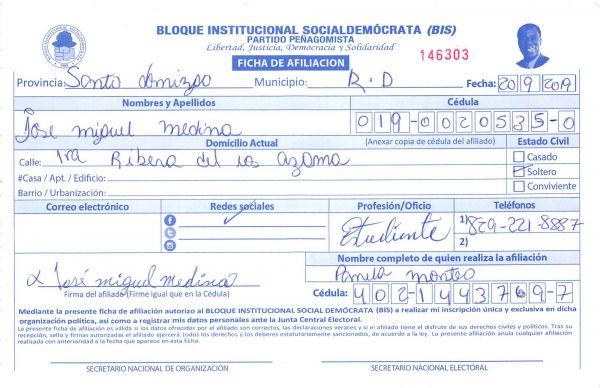 BLOQUE INSTITUCIONAL SOCIALDEMÓCRATA (BIS)
PARTIDO PEÑAGOMISTA
Libertad, Justicia, Democracia y Solidaridad
FICHA DE AFILIACION
146303
Provincia: Santo domizgo Municipio: R.D Fecha: 20 9 2019
Nombres y Apellidos Cédula
Jose miguel medina 019-0020535-0
Domicilio Actual (Anexar copia de cédula del afiliado) Estado Civil
Calle: 1ra Ribera del los azama Casado
#Casa / Apt. / Edificio: Soltero
Barrio / Urbanización: Conviviente
Correo electrónico Redes sociales Profesión/Oficio Teléfonos
Etudiante 1) 829-221-8887
2)
Nombre completo de quien realiza la afiliación
X José miguel medina Pamela monteo
Firma del afiliado (Firme igual que en la Cédula) Cédula: 402-1443769-7
Mediante la presente ficha de afiliación autorizo al BLOQUE INSTITUCIONAL SOCIAL DEMÓCRATA (BIS) a realizar mi inscripción única y exclusiva en dicha
organización política, así como a registrar mis datos personales ante la Junta Central Electoral.
La presente ficha de afiliación es válida si los datos ofrecidos por el afiliado son correctos, las declaraciones veraces y si el afiliado tiene el disfrute de sus derechos civiles y políticos. Tras su
recepción, sello y firmas autorizadas el afiliado ejercerá todos los derechos y los deberes estatutariamente sancionados, de acuerdo a la ley. La presente afiliación anula cualquier afiliación
realizada con anterioridad a la fecha que aparece en esta ficha.
SECRETARIO NACIONAL DE ORGANIZACIÓN SECRETARIO NACIONAL ELECTORAL